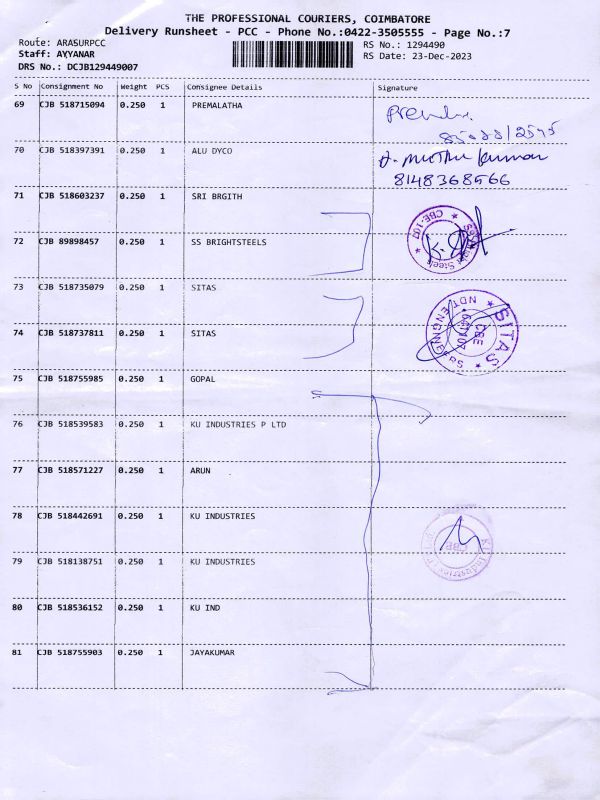 THE PROFESSIONAL COURIERS, COIMBATORE
Delivery Runsheet - PCC - Phone No.:0422-3505555 - Page No.:7
Route: ARASURPCC RS No.: 1294490
Staff: AYYANAR RS Date: 23-Dec-2023
DRS No.: DCJB129449007
S No Consignment No Weight PCS Consignee Details Signature
69 CJB 518715094 0.250 1 PREMALATHA
70 CJB 518397391 0.250 1 ALU DYCO
8148368566
71 CJB 518603237 0.250 1 SRI BRGITH
72 CJB 89898457 0.250 1 SS BRIGHTSTEELS
73 CJB 518735079 0.250 1 SITAS
74 CJB 518737811 0.250 1 SITAS
SITAS
CBE
75 CJB 518755985 0.250 1 GOPAL
76 CJB 518539583 0.250 1 KU INDUSTRIES P LTD
77 CJB 518571227 0.250 1 ARUN
78 CJB 518442691 0.250 1 KU INDUSTRIES
79 CJB 518138751 0.250 1 KU INDUSTRIES
80 CJB 518536152 0.250 1 KU IND
81 CJB 518755903 0.250 1 JAYAKUMAR